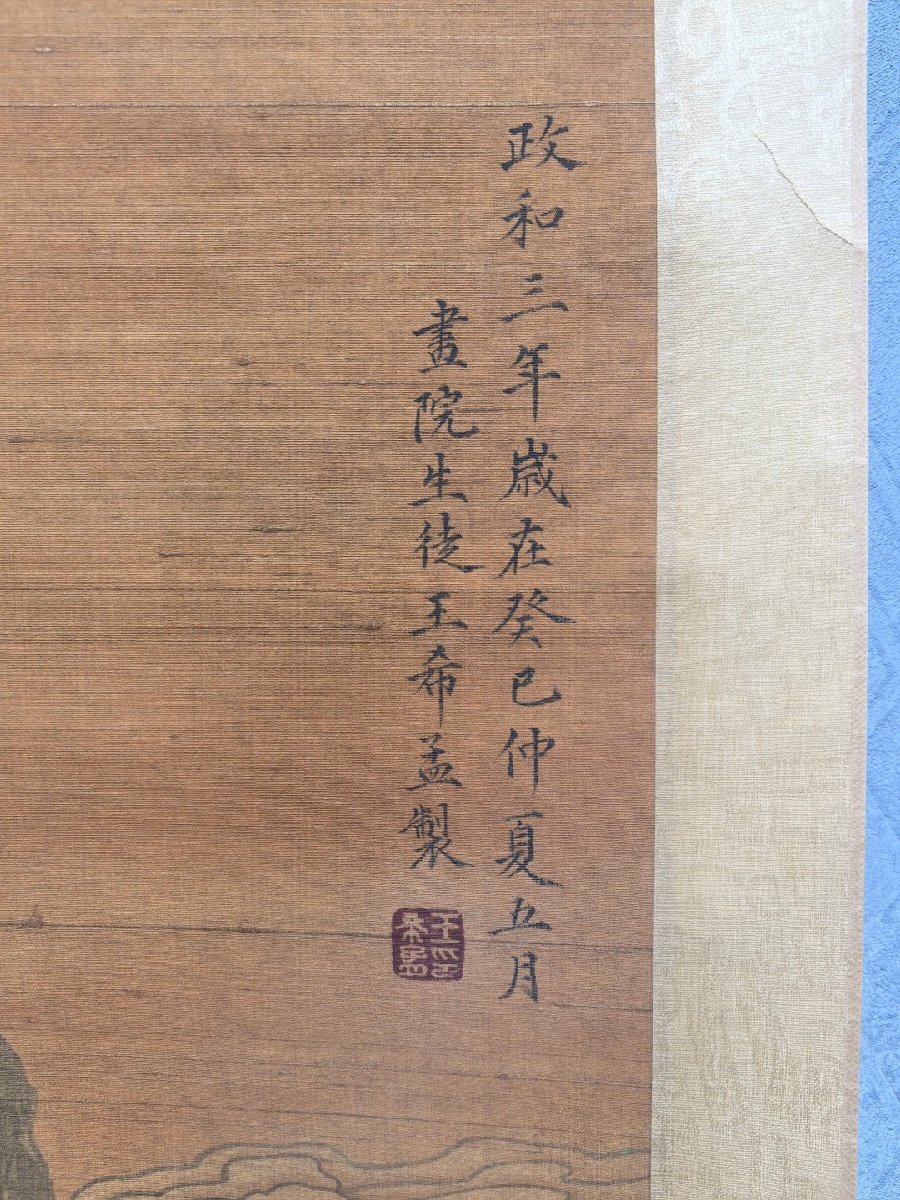 政和三年歲在癸巳仲夏五月
畫院生徒王希孟製